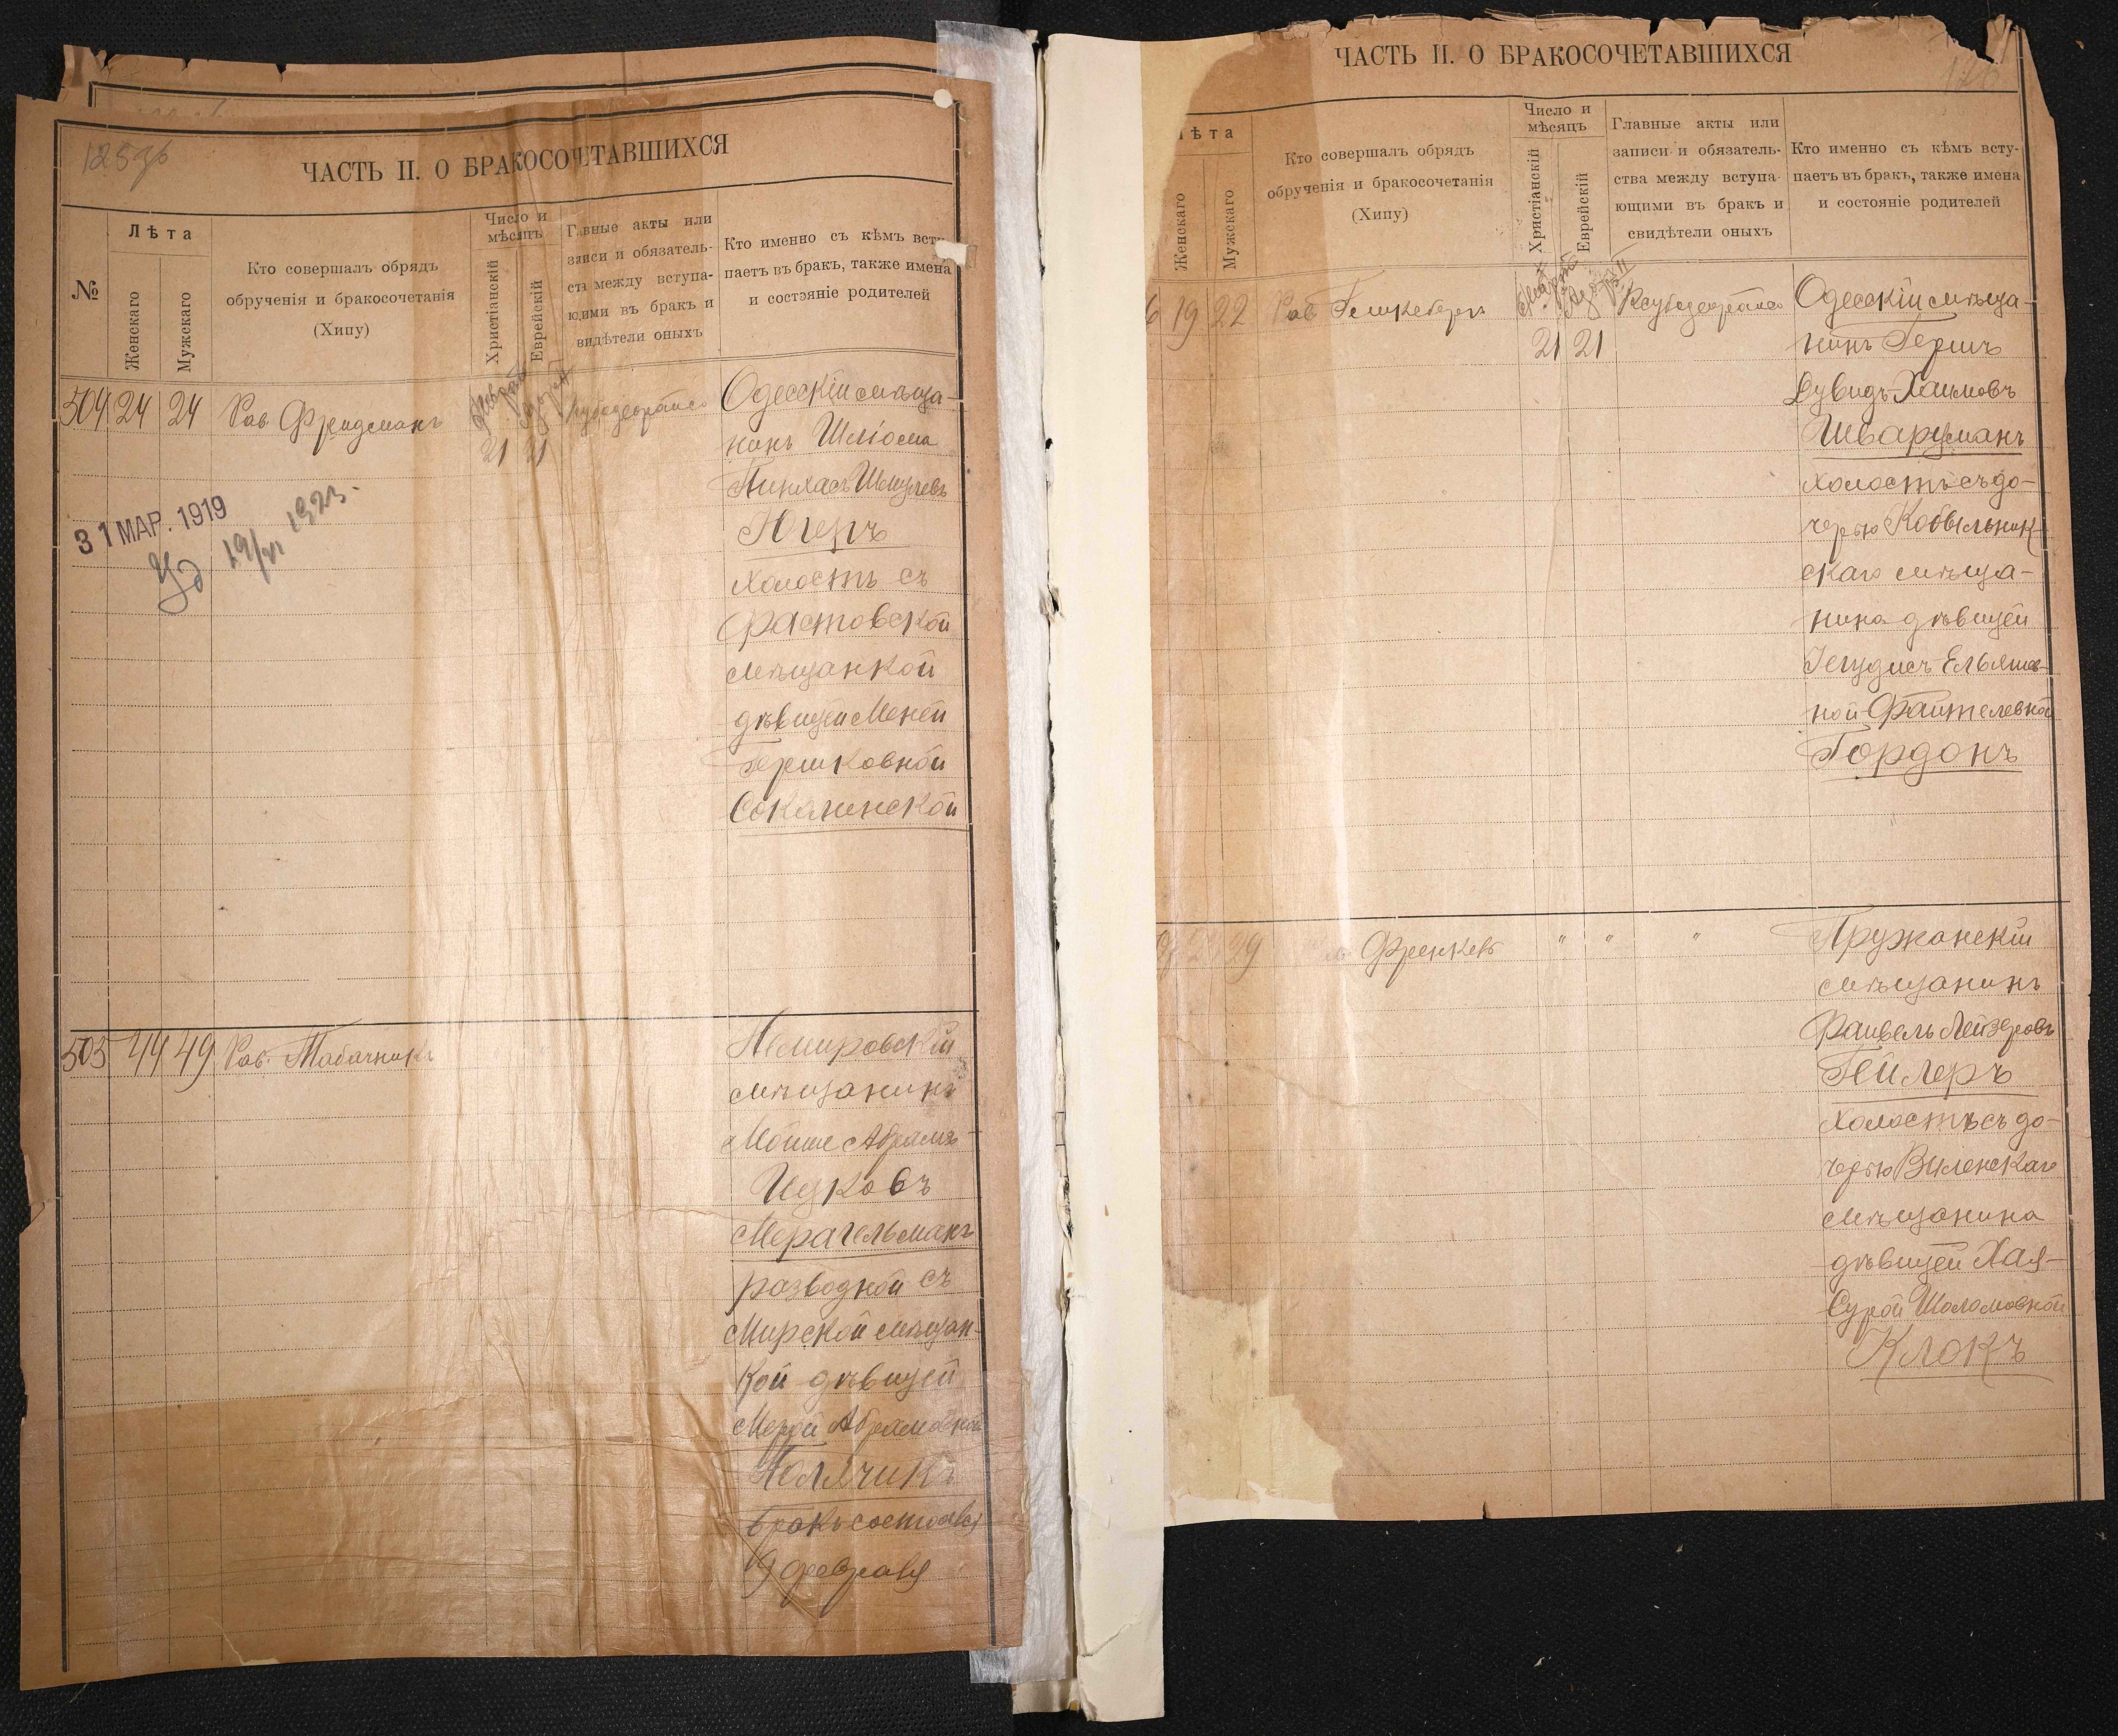 125 об
ЧАСТЬ II. О БРАКОСОЧЕТАВШИХСЯ
№
Лѣта
Женскаго
Мужскаго
Кто совершалъ обрядъ
обрученія и бракосочетанія
(Хипу)
Число и
мѣсяцъ
Христіанскій
Еврейскій
Главные акты или
записи и обязатель-
ства между вступа-
ющими въ бракъ и
видѣтели оныхъ
Кто именно съ кѣмъ всту-
паетъ въ бракъ, также имена
и состояніе родителей
504 24 24 Рав. Фридманъ
21 21
Одесскій мѣща-
нинъ Шліома
Пинхасъ Шмулевъ
Югеръ
холостъ съ
Фастовской
мѣщанкой
дѣвицей Меней
Гершковной
Соколинской
31 МАР. 1919
19/VI 1923.
505 44 49 Рав. Табачникъ
Немировскій
мѣщанинъ
Мойше Абрамъ
Ицковъ
Мерагельманъ
разводной съ
Мирской мѣщан-
кой дѣвицей
Мерой Абрамовной
Полячикъ
бракъ состоялся
19 февраля
ЧАСТЬ II. О БРАКОСОЧЕТАВШИХСЯ
126
ѣта
Женскаго
Мужскаго
Кто совершалъ обрядъ
обрученія и бракосочетанія
(Хипу)
Число и
мѣсяцъ
Христіанскій
Еврейскій
Главные акты или
записи и обязатель-
ства между вступа-
ющими въ бракъ и
свидѣтели оныхъ
Кто именно съ кѣмъ всту-
паетъ въ бракъ, также имена
и состояніе родителей
6 19 22 Рав
21 21
Одесскій мѣща-
нинъ Гершъ
Дувидъ-Хаимовъ
Шварцманъ
холостъ съ до-
черью Кобыльник-
скаго мѣща-
нина дѣвицей
Іегудисъ-Ельяшев-
ной Файтелевной
Гордонъ
29 Френкель " " "
Пружанскій
мѣщанинъ
Файвель Лейзеровъ
Гейлеръ
холостъ съ до-
черью Виленскаго
мѣщанина
дѣвицей Хая-
Сурой Шоломовной
Клокъ